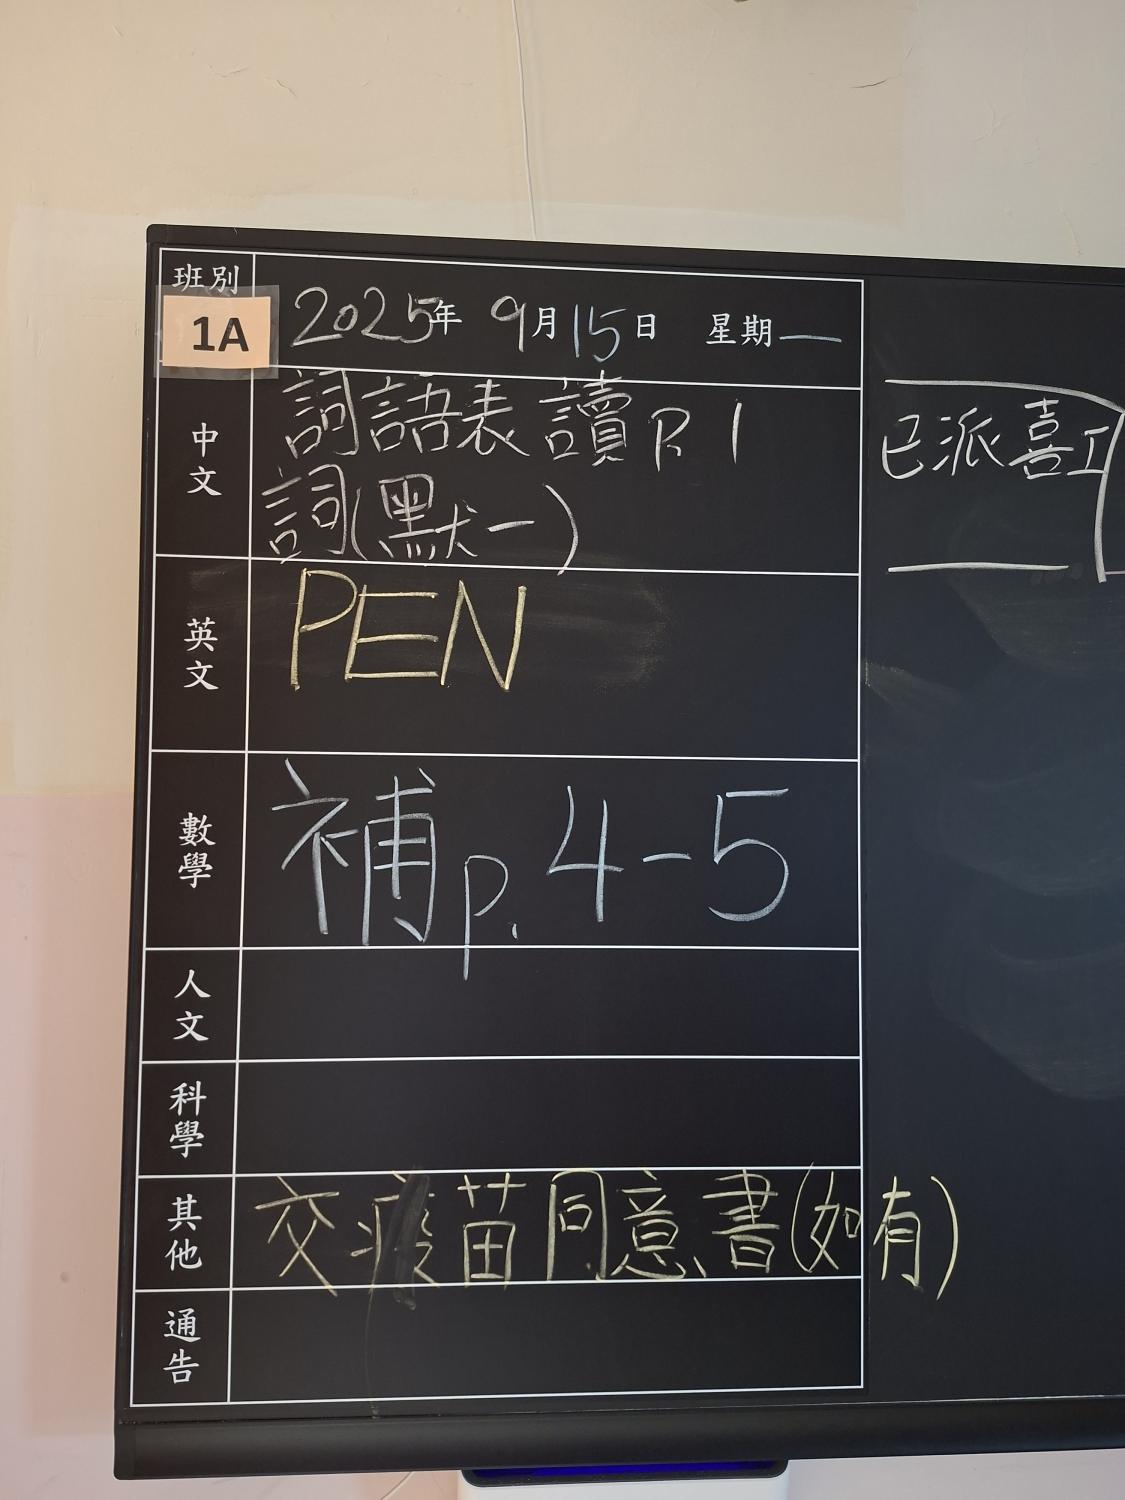 班別
1A
2025年 9月15日 星期一
中文
詞語表讀P.1
詞(默一)
已派喜
英文
PEN
數學
補p.4-5
人文
科學
其他
交疫苗同意書(如有)
通告